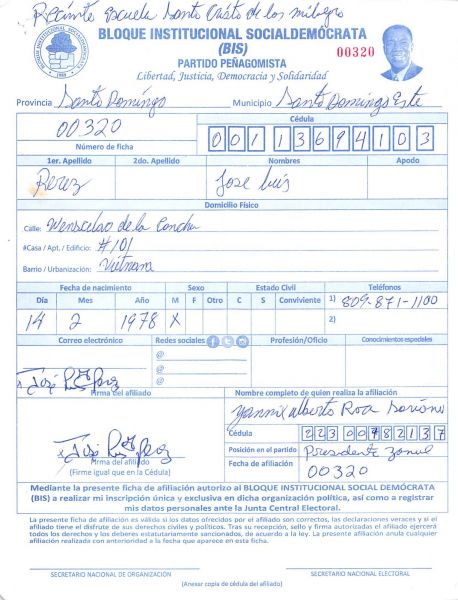 Recinto escuela Santo Cristo de los milagro
BLOQUE INSTITUCIONAL SOCIALDEMÓCRATA
(BIS)
00320
PARTIDO PEÑAGOMISTA
Libertad, Justicia, Democracia y Solidaridad
Provincia Santo Domingo Municipio Santo Domingo Este
00320
Número de ficha
Cédula
00113694103
1er. Apellido 2do. Apellido Nombres Apodo
Perez Jose luis
Domicilio Físico
Calle: Wenscelao de la Concha
#Casa / Apt. / Edificio: #101
Barrio / Urbanización: Vietnam
Fecha de nacimiento Sexo Estado Civil Teléfonos
Día Mes Año M F Otro C S Conviviente 1) 809-871-1100
14 2 1978 X 2)
Correo electrónico Redes sociales Profesión/Oficio Conocimientos especiales
@
@
@
José Luis Perez
Firma del afiliado
Nombre completo de quien realiza la afiliación
Yannix Alberto Roa Soriano
Cédula 22300782137
José Luis Perez
Firma del afiliado
(Firme igual que en la Cédula)
Posición en el partido Presidente zonal
Fecha de afiliación 00320
Mediante la presente ficha de afiliación autorizo al BLOQUE INSTITUCIONAL SOCIAL DEMÓCRATA
(BIS) a realizar mi inscripción única y exclusiva en dicha organización política, así como a registrar
mis datos personales ante la Junta Central Electoral.
La presente ficha de afiliación es válida si los datos ofrecidos por el afiliado son correctos, las declaraciones veraces y si el
afiliado tiene el disfrute de sus derechos civiles y políticos. Tras su recepción, sello y firma autorizadas el afiliado ejercerá
todos los derechos y los deberes estatutariamente sancionados, de acuerdo a la ley. La presente afiliación anula cualquier
afiliación realizada con anterioridad a la fecha que aparece en esta ficha.
SECRETARIO NACIONAL DE ORGANIZACIÓN SECRETARIO NACIONAL ELECTORAL
(Anexar copia de cédula del afiliado)